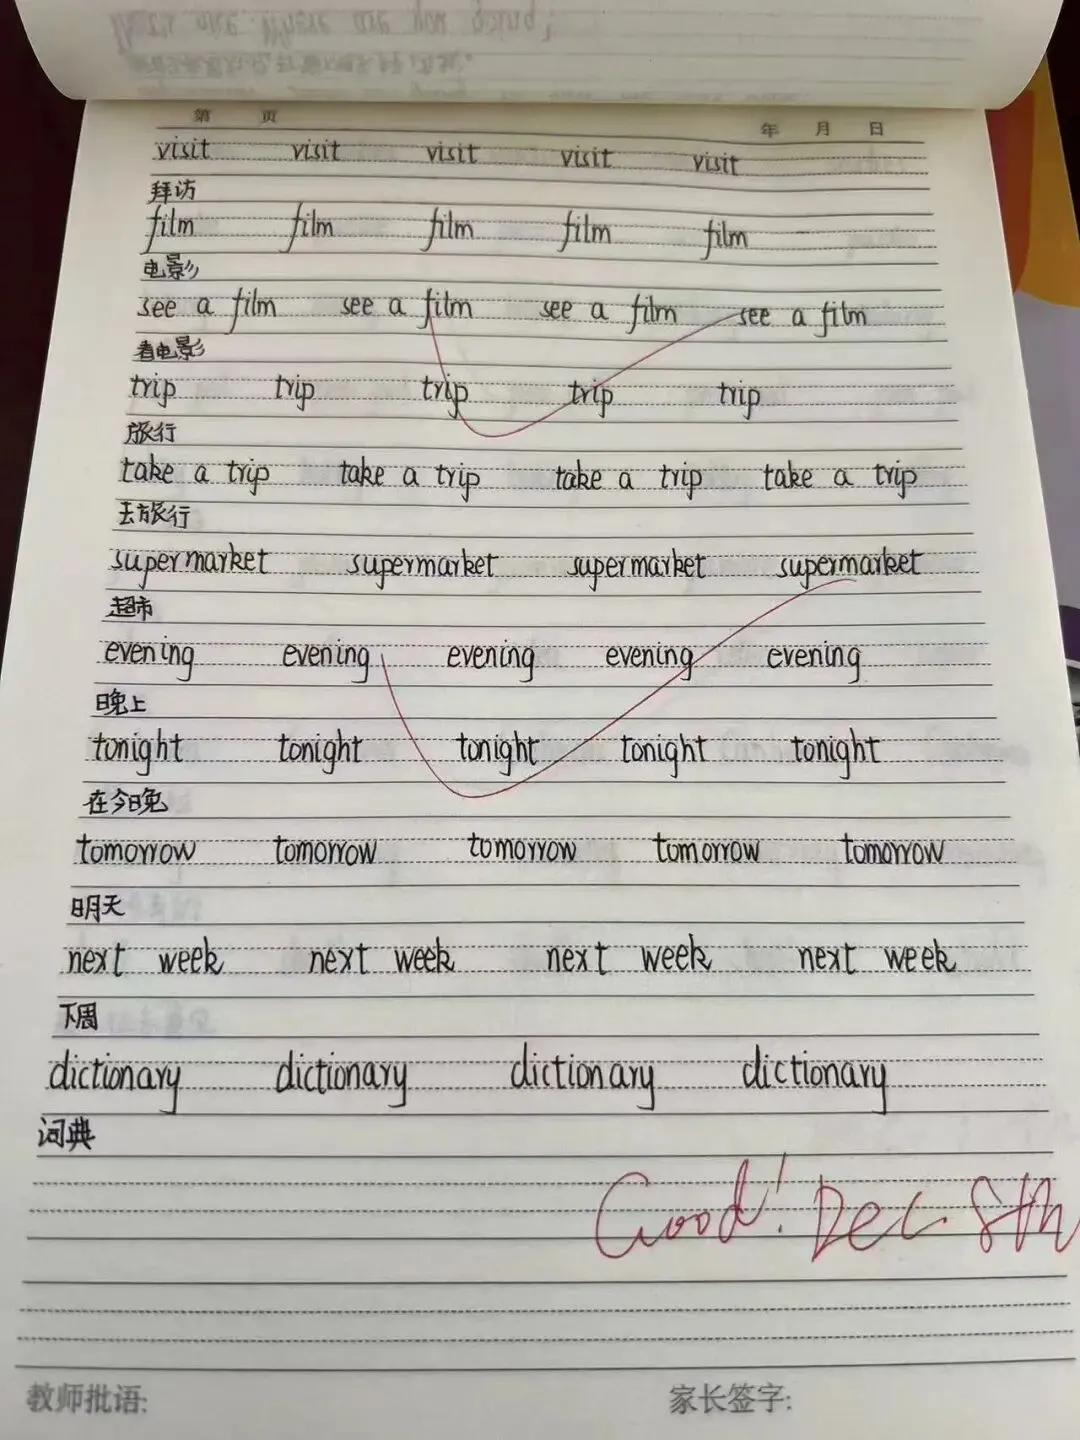 第 页 年 月 日
visit visit visit visit visit
拜访
film film film film film
电影
see a film see a film see a film see a film
看电影
trip trip trip trip trip
旅行
take a trip take a trip take a trip take a trip
去旅行
supermarket supermarket supermarket supermarket
超市
evening evening evening evening evening
晚上
tonight tonight tonight tonight tonight
在今晚
tomorrow tomorrow tomorrow tomorrow tomorrow
明天
next week next week next week next week
下周
dictionary dictionary dictionary dictionary
词典
Good! Dec. 8th
教师批语: 家长签字: